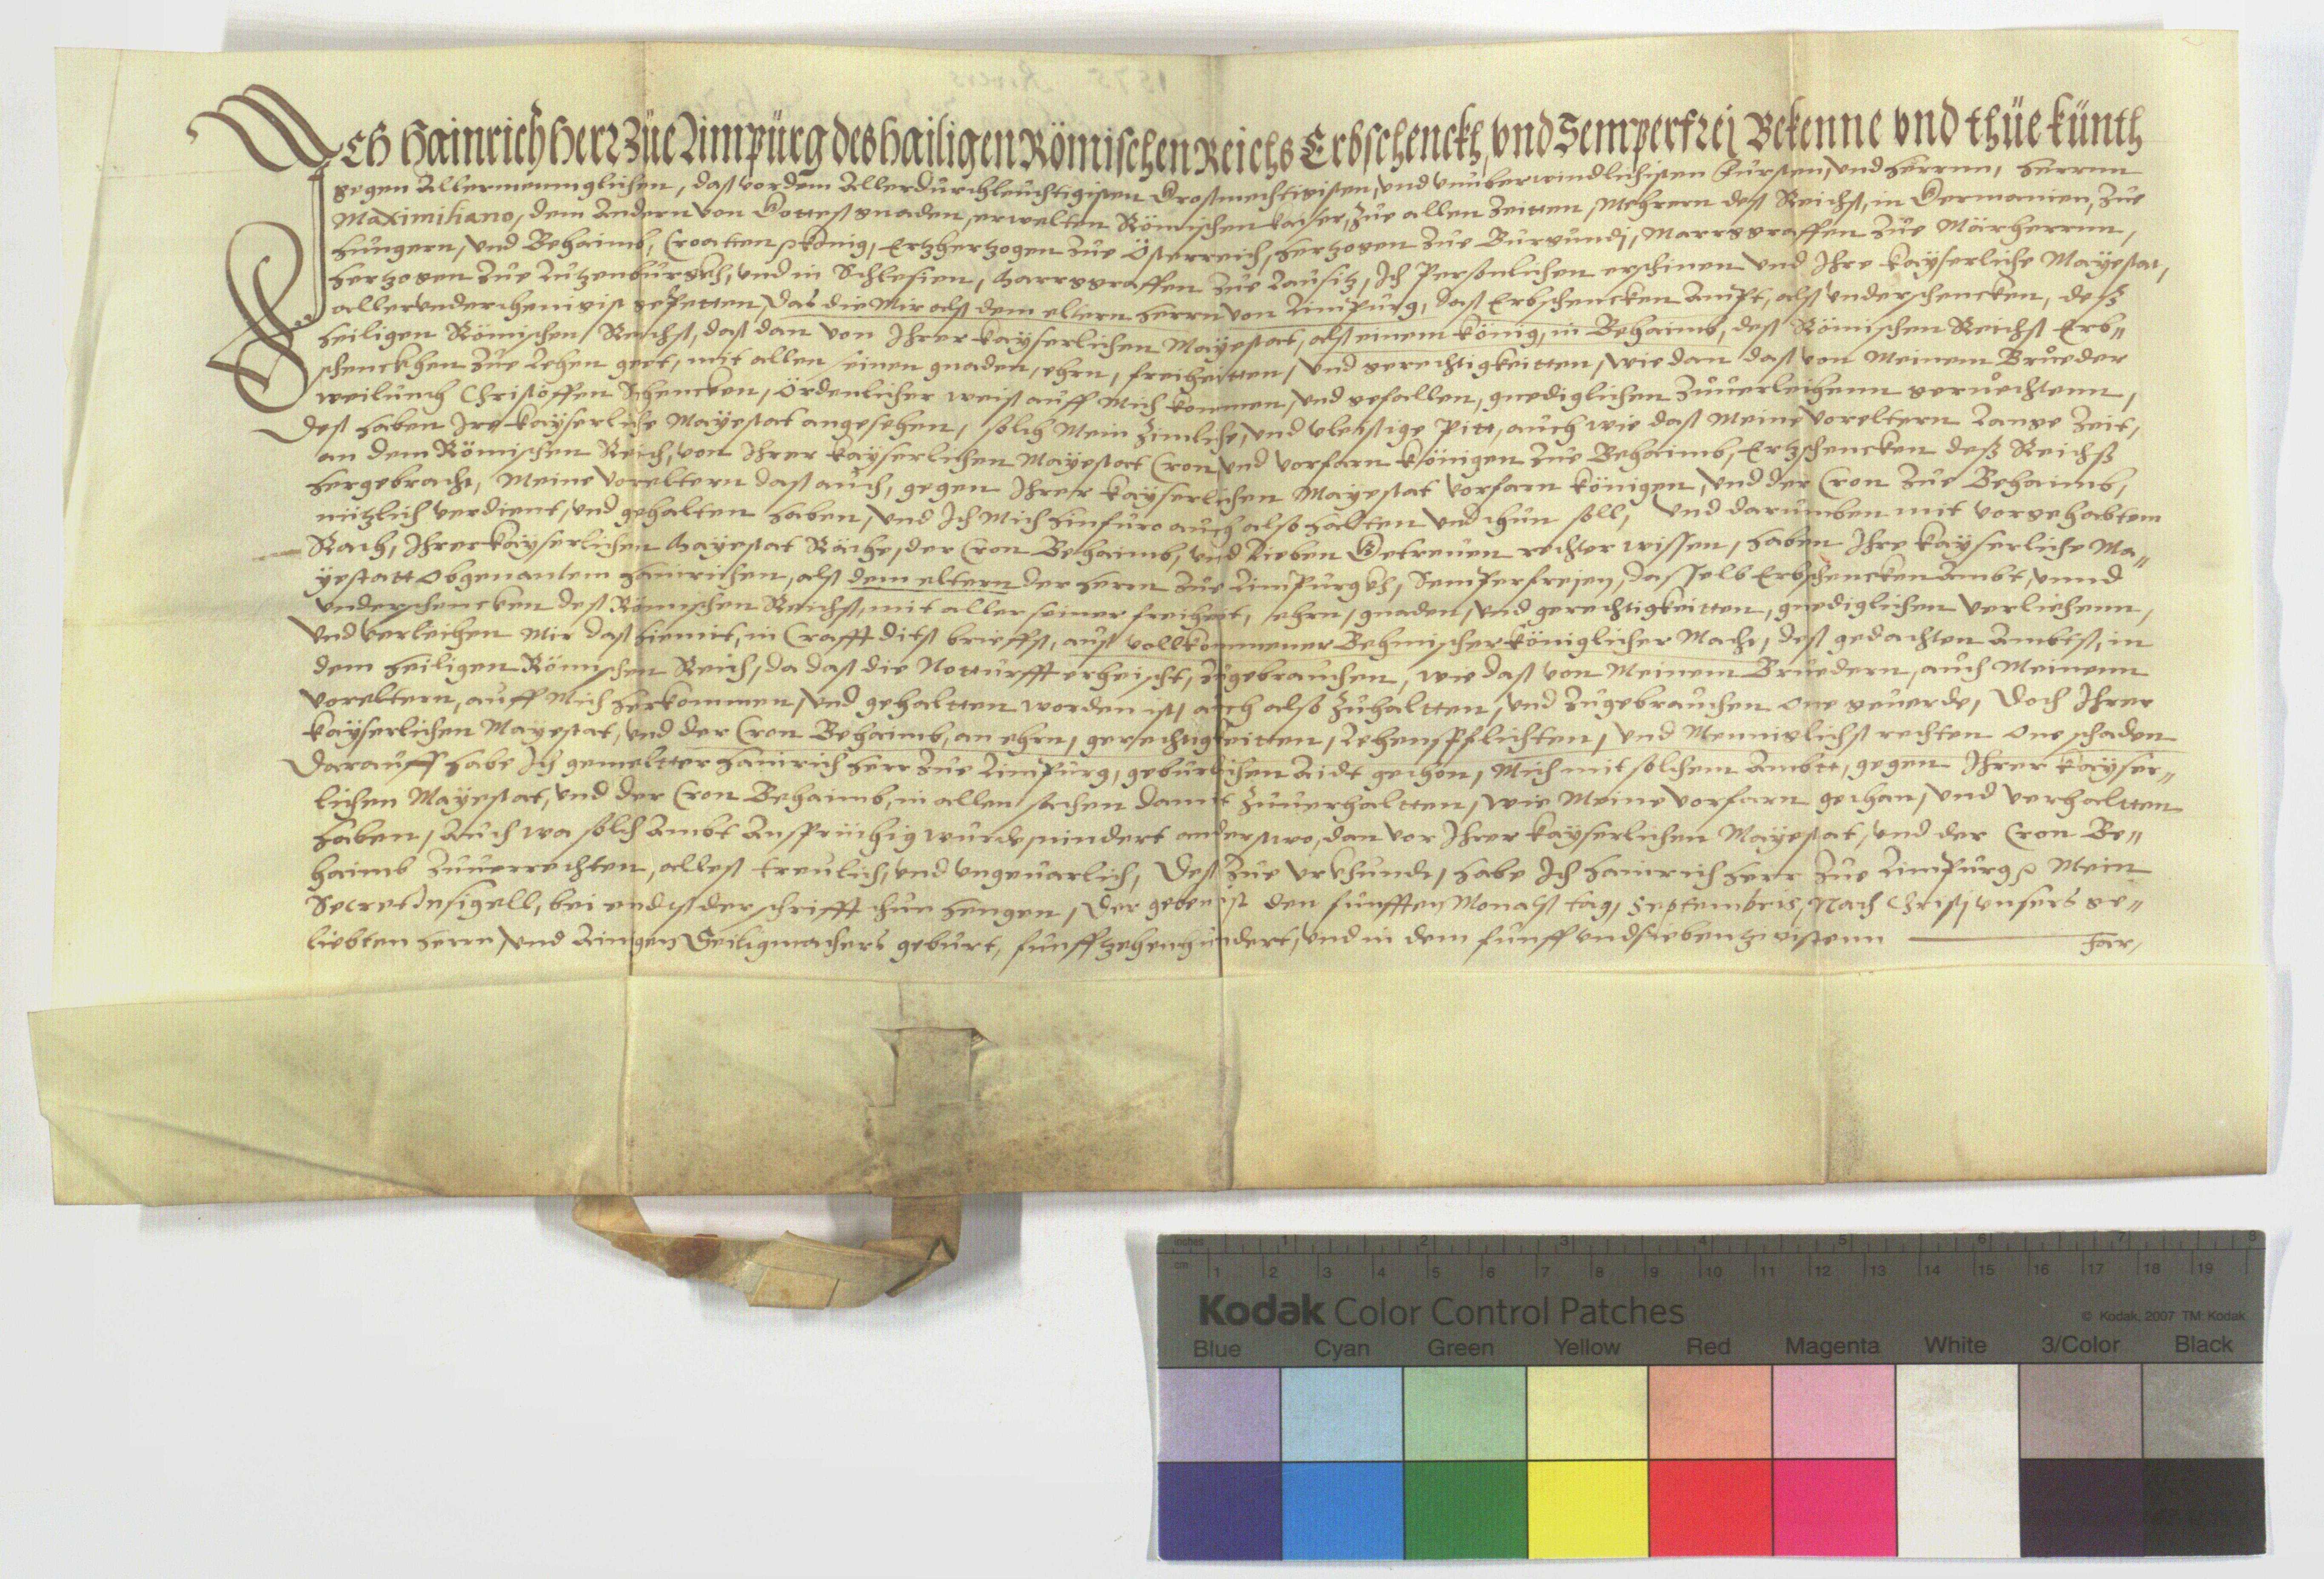 Ich Hainrich Herr Züe Limpürg des Hailigen Römischen Reichs Erbschenckh, vnd Semperfrej Bekenne vnd thüe künth
gegen Allermenniglichen, daß vor dem Allerdurchleuchtigisten Großmechtigisten, vnd vnüberwindlichisten Fürsten, vnd Herrnn, Herrnn
Maximiliano, dem Andern von Gottes gnaden, erwelten Römischen Kaiser, Züe allen Zeitten Mehrern deß Reichß, in Germanien, Züe
Hungern, vnd Behaimb, Croatien König, Ertzhertzogen Züe Österreich, Hertzogen Züe Burgundj, Marggraffen Züe Märherrnn,
Hertzogen Züe Lützenburgkh, vnd in Schlesien, Marggraffen Züe Lausitz, Ich Personlichen erschinen vnd Ihre Kayserliche Mayestat,
allervnderthenigist gepetten, das die Mir alß dem eltern Herrn von Limpurg, daß Erbschencken Ampt, alß vnderschencken, deß
Heiligen Römischen Reichß, daß dan von Ihrer Kayserlichen Mayestat, alß einem König, in Behaimb, deß Römischen Reichß Erb"
schenckhen Züe Lehen geet, mit allen seinen gnaden, ehrn, freiheitten, vnd gerechtigkeitten, wie dan daß von Meinem Brueder
weilundt Christoffen Schencken, Ordenlicher weiß auff Mich kommen, vnd gefallen, gnediglichen Zuuerleihenn geruechtenn,
Deß haben Ire Kayserliche Mayestat angesehen, solch Mein Zimliche, vnd vleissige Pitt, auch wie daß Meine Voreltern Lange Zeit,
an dem Römischen Reich, von Ihrer Kayserlichen Mayestat Cron vnd Vorfarn Königen Züe Behaimb, Ertzschencken deß Reichß
hergebracht, Meine Voreltern daß auch, gegen Ihrer Kayserlichen Mayestat Vorfarn Königen, vnd der Cron Züe Behaimb,
nützlich verdient, vnd gehalten haben, vnd Ich Mich hinfüro auch also halten vnd thun soll, vnd darumben mit vorgehabtem
Rath, Ihrer Kayserlichen Mayestat Räthe, der Cron Behaimb, vnd Lieben Getreuen rechter wissen, haben Ihre Kayserliche Ma"
yestatt Obgenantem Hainrichen, alß dem eltern der Herrn Züe Limpurgkh, Semperfrejen, dasselb Erbschencken Ambt, vnnd
Vnderschencken deß Römischen Reichß, mit aller seiner freiheit, ehrn, gnaden, vnd gerechtigkeitten, gnediglichen Verliehenn,
Vnd Verleihen Mir daß hiemit, in Crafft ditß brieffß, auß vollkommener Behmischer Königlicher Macht, deß gedachten Ambtß, in
dem Heiligen Römischen Reich, da daß die Notturfft erheischt, Zugebrauchen, wie daß von Meinem Bruedern, auch Meinenn
Voreltern, auff Mich herkommen, vnd gehaltten worden ist, auch also Zuhaltten, vnd Zugebrauchen One geuerde, Doch Ihrer
Kayserlichen Mayestat, vnd der Cron Behaimb, an ehrn, gerechtigkeitten, Lehenspflichten, vnd Menniglichß rechten One schaden
Darauff habe Ich gemeltter Hainrich Herr Züe Limpurg, gebürlichen Aidt gethon, Mich mit solchem Ambtt, gegen Ihrer Kayser"
lichen Mayestat, vnd der Cron Behaimb, in allen sachen damit Zuuerhaltten, wie Meine Vorfarn gethan, vnd verhaltten
haben, Auch wa solch Ambt Ansprüchig würde, nindert anderstwo, dan vor Ihrer Kayserlichen Mayestat, vnd der Cron Be"
haimb Zuuerrechten, alleß treulich, vnd vngeuarlich, Deß Züe Vrkhundt, habe Ich Hainrich Herr Züe Limpurg Mein
Secret Insigell, bei endß der schrifft thun hengen, Der geben ist den fünfften Monatß tag, Septembris, Nach Christj vnsers ge"
liebten Herrn, vnd Ainigen Seiligmachers geburt, fünffzehenhundert, vnd in dem fünff vnd siebentzigistenn Jar,
1575 Revers
Kodak Color Control Patches
© Kodak, 2007 TM: Kodak
inches 1 2 3 4 5 6 7 8
cm 1 2 3 4 5 6 7 8 9 10 11 12 13 14 15 16 17 18 19
Blue Cyan Green Yellow Red Magenta White 3/Color Black